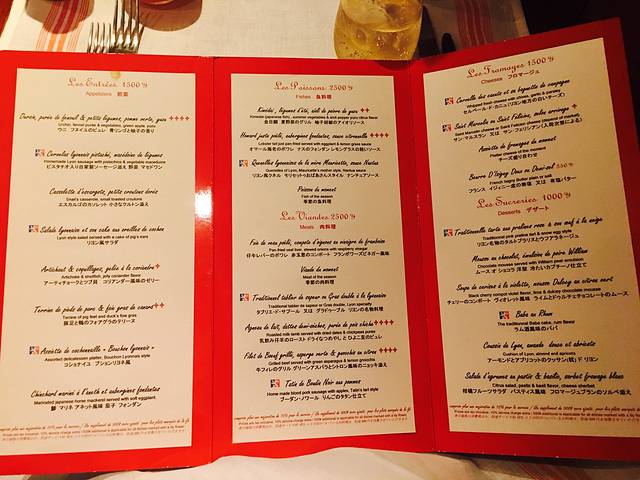 Les Entrées 1500
Appetizers 前菜
Oursin, purée de fenouil & petits légumes, pomme verte, yuzu
Urchin, fennel purée & vegetables, green apple, yuzu
ウニ フヌイユのピュレ 青リンゴと柚子の香り
Cervelas lyonnais pistaché, macédoine de légumes
Homemade Lyon sausage with pistachio & vegetable macedoine
ピスタチオ入り自家製ソーセージ リヨン風 野菜 マセドワン
Cassolette d'escargots, petits croutons dorés
Snail's casserole, small toasted croutons
エスカルゴのカソレット 小さなクルトン添え
Salade lyonnaise et son cake aux oreilles de cochon
Lyon style salad served with a cake of pig's ears
リヨン風サラダ
Artichaut & coquillages, gelée à la coriandre
Artichoke & shellfish, jelly coriander flavor
アーティチョークとツブ貝 コリアンダー風味のゼリー
Terrine de pieds de porc & foie gras de canard
Terrine of pig feet and duck's foie gras
豚足と鴨のフォアグラのテリーヌ
Assiette de cochonnaille « Bouchon lyonnais »
Assorted delicatessen platter, Bouchon Lyonnais style
コショナイユ ブションリヨネ風
Chinchard mariné à l'aneth et aubergines fondantes
Marinated japanese horse mackerel served with soft eggplant
鯵 マリネ アネット風味 茄子 フォンダン
Les Poissons 2500
Fishes 魚料理
Kinmédai, légumes d'été, aïoli de poivre de yuzu
Kinmédai (japanese fish), summer vegetables & aïoli pepper yuzu citrus flavor
金目鯛 夏野菜のグリル 柚子胡椒のアイオリソース
Homard juste poêlé, aubergines fondantes, sauce citronnelle
Lobster tail just pan-fried served with eggplant & lemon grass sauce
オマール海老のポワレ ナスのフォンダン レモングラスの軽いソース
Quenelles lyonnaises de la mère Mauricette, sauce Nantua
Quenelles of Lyon, Mauricette's mother style, Nantua sauce
リヨン風クネル モリセットおばあさんスタイル ナンチュアソース
Poisson du moment
Fish of the season
季節の魚料理
Les Viandes 2500
Meats 肉料理
Foie de veau poêlé, compote d'oignons au vinaigre de framboise
Pan-fried veal liver, stewed onions with raspberry vinegar
仔牛レバーのポワレ 赤玉葱のコンポート フランボワーズビネガー風味
Viande du moment
Meat of the season
季節の肉料理
Traditionnel tablier de sapeur ou Gras double à la lyonnaise
Traditional tablier de sapeur or Gras double, Lyon specialty
タブリエ・ド・サプール 又は グラドゥーブル リヨンの名物料理
Agneau de lait, dattes demi-séchées, purée de pois chiche
Roasted milk lamb served with dried dates & chickpeas puree
乳飲み仔羊のロースト ドライなつめやし と ひよこ豆のピュレ
Filet de Boeuf grillé, asperge verte & gnocchis au citron
Grilled beef served with green asparagus & lemon gnocchis
牛フィレのグリル グリーンアスパラとシトロン風味のニョッキ添え
Tatin de Boudin Noir aux pommes
Home made blood pork sausage with apples, Tatin's tart style
ブーダン・ノワール りんごのタタン仕立て
Les Fromages 1500
Cheeses フロマージュ
Cervelle des canuts et sa baguette de campagne
Whipped fresh cheese with chives, garlic & parsley
セルベール・ド・カニュ (リヨン地方の白いチーズ)
Saint Marcelin ou Saint Félicien, selon arrivage
Saint Marcelin cheese or Saint Felicien cheese (depend of market)
サン・マルスラン 又は サン・フェリシアン (入荷状態による)
Assiette de fromages du moment
Platter cheese of the moment
チーズ盛り合わせ
Beurre D'Isigny Doux ou Demi-sel 350
French Isigny Butter plain or salt
フランス イジィニー産の無塩 又は 有塩バター
Les Sucreries 1000
Desserts デザート
Traditionnelle tarte aux pralines rose & son oeuf à la neige
Traditionnal pink praline tart & snow egg style
リヨン名物のタルトプラリネとウフアラネージュ
Mousse au chocolat, émulsion de poire William
Chocolate mousse served with William pear emulsion
ムース オ ショコラ 洋梨 冷たいカプチーノ仕立て
Soupe de cerises à la violette, mousse Dulcey au citron vert
Black cherry compot violet flavor, lime & dulcey chocolate mousse
チェリーのコンポート ヴィオレット風味 ライムとドゥルチェチョコレートのムース
Baba au Rhum
The traditionnal Baba cake, rum flavor
ラム酒風味のババ
Coussin de Lyon, amande douce et abricots
Cushion of Lyon, almond and apricots
アーモンドとアプリコットのクッサン(枕) ド リヨン
Salade d'agrumes au pastis & basilic, sorbet fromage blanc
Citrus salad, pastis & basil flavor, cheese sherbet
柑橘フルーツサラダ パスティス風味 フロマージュブランのソルベ添え